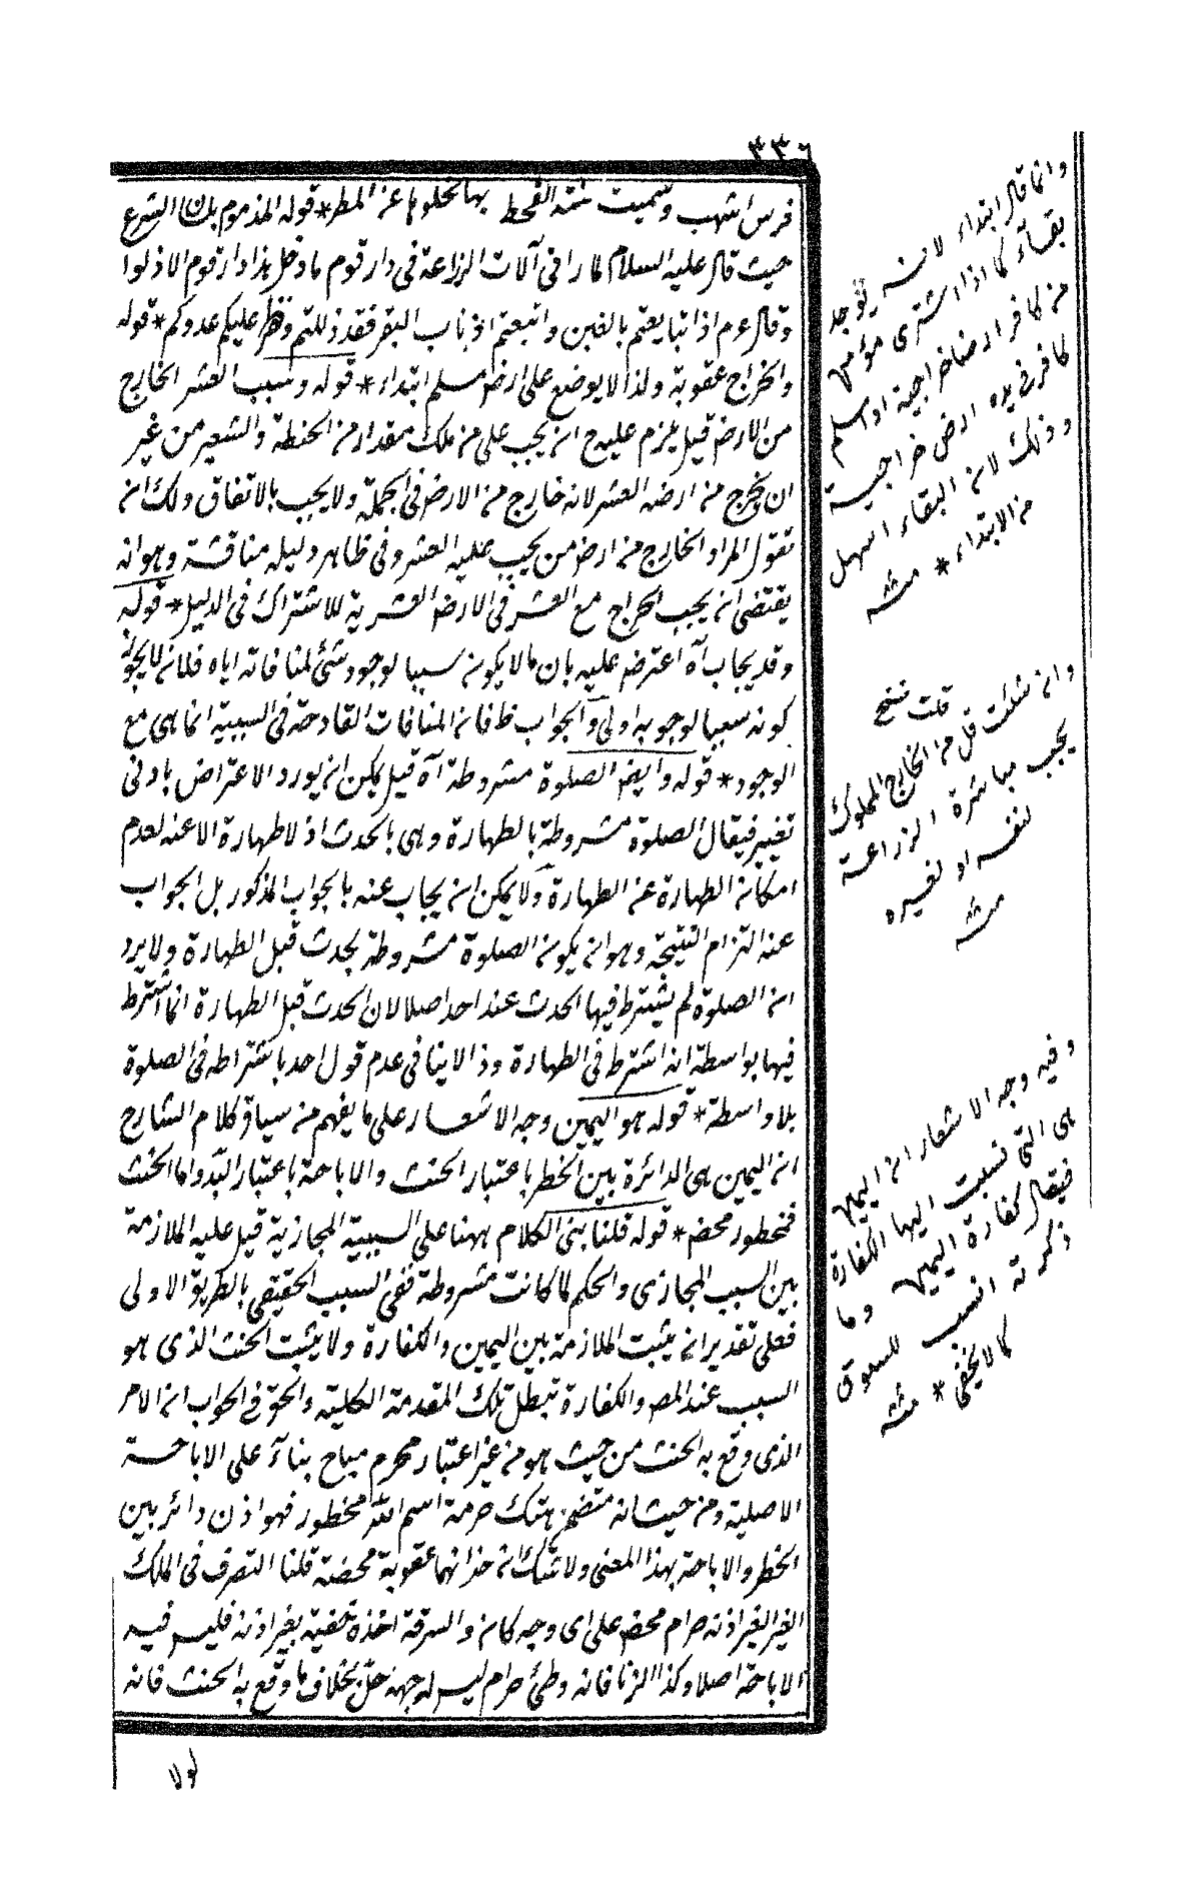 ٣٣٦
فرس اشهب وسميت سنة القحط بها لخلوها عن المطر * قوله المذموم بلسان الشرع
حيث قال عليه السلام لما رأى آلات الزراعة فى دار قوم ما دخل هذا دار قوم الا ذلوا
وقال عم اذا تبايعتم بالعين واتبعتم اذناب البقر فقد ذللتم وظفر عليكم عدوكم * قوله
والخراج عقوبة ولذا لا يوضع على ارض مسلم ابتداء * قوله وسبب العشر الخارج
من الارض قيل يلزم عليه ح ان يجب على من ملك مقدارا من الحنطة والشعير من غير
ان يخرج من ارضه العشر لانه خارج من الارض فى الجملة ولا يجب بالاتفاق ولك ان
تقول المراد الخارج من ارض من يجب عليه العشر وفى ظاهر دليله مناقشة وهو انه
يقتضى ان يجب الخراج مع العشر فى الارض العشرية للاشتراك فى الدليل * قوله
وقد يجاب آه اعترض عليه بان ما لا يكون سببا لوجود شئ لمنافاته اياه فلان لا يجوز
كونه سببا لوجوبه اولى والجواب ظ فان المنافات القادحة فى السببية انما هى مع
الوجود * قوله وايضا الصلوة مشروطة آه قيل يمكن ان يورد الاعتراض بادنى
تغيير فيقال الصلوة مشروطة بالطهارة وهى بالحدث اذ لا طهارة الا عنه لعدم
امكان الطهارة عن الطهارة ولا يمكن ان يجاب عنه بالجواب المذكور بل الجواب
عنه التزام النتيجة وهو ان يكون الصلوة مشروطة بحدث قبل الطهارة ولا يرد
ان الصلوة لم يشترط فيها الحدث عند احد اصلا لان الحدث قبل الطهارة انما اشترط
فيها بواسطة انه اشترط فى الطهارة وذا لا ينافى عدم قول احد باشتراطه فى الصلوة
بلا واسطة * قوله هو اليمين وجه الاشعار على ما يفهم من سياق كلام الشارح
ان اليمين هى الدائرة بين الخطر باعتبار الحنث والاباحة باعتبار البر واما الحنث
فمحظور محض * قوله قلنا بنى الكلام ههنا على السببية المجازية قيل عليه الملازمة
بين السبب المجازى والحكم لما كانت مشروطة ففى السبب الحقيقى بالطريق الاولى
فعلى تقدير ان يثبت الملازمة بين اليمين والكفارة ولا يثبت الحنث الذى هو
السبب عند المص والكفارة تبطل تلك المقدمة الكلية والحق فى الجواب ان الامر
الذى وقع به الحنث من حيث هو من غير اعتبار محرم مباح بناء على الاباحة
الاصلية ومن حيث انه متضمن هتك حرمة اسم الله محظور فهو اذن دائر بين
الخطر والاباحة بهذا المعنى ولا شك ان جزائهما عقوبة محضة قلنا التصرف فى الملك
الغير الغير اذنه حرام محض على اى وجه كان والسرقة اخذه خفية بغير اذنه فليس فيه
الاباحة اصلا وكذا الزنا فانه وطئ حرام ليس له جهة حل بخلاف ما وقع به الحنث فانه
لولا
وانما قال ابتداء لانه يوجد
بقاء كما اذا اشترى مؤمن
من كافر ارضا خراجية او اسلم
كافر فى يده ارض خراجية
وذلك لان البقاء اسهل
من الابتداء * منه
وان شئت قلت فتح
قل من الخارج المملوك
يجب مباشرة الزراعة
لنفسه او لغيره
منه
وفيه وجه الاشعار ان اليمين
هى التى نسبت اليها الكفارة
فيقال كفارة اليمين وما
ذكرته انسب للسوق
كما لا يخفى * منه